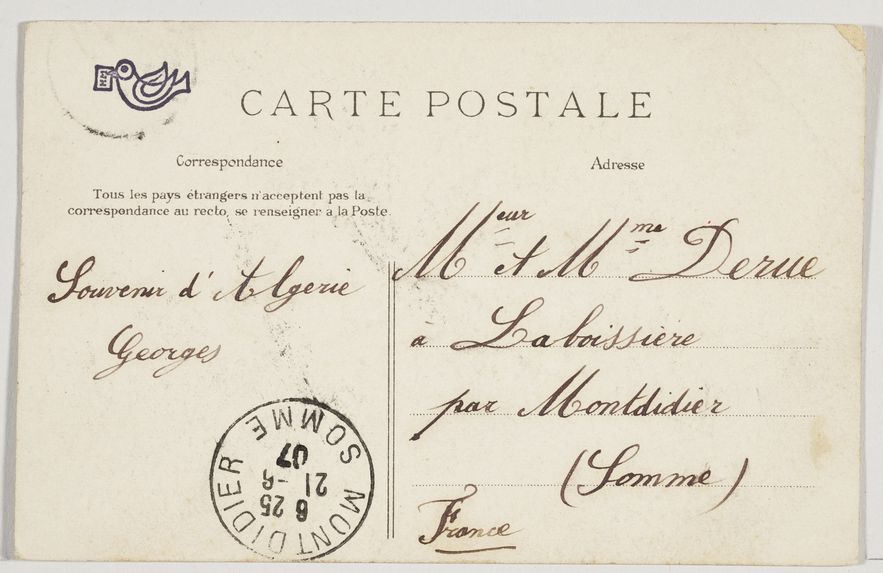 CARTE POSTALE
Correspondance
Tous les pays étrangers n'acceptent pas la
correspondance au recto, se renseigner à la Poste
Souvenir d'Algerie
Georges
Adresse
Meur et Mme Derue
à Laboissière
par Montdidier
(Somme)
France
MONTDIDIER SOMME
6 25
21 - 6
07